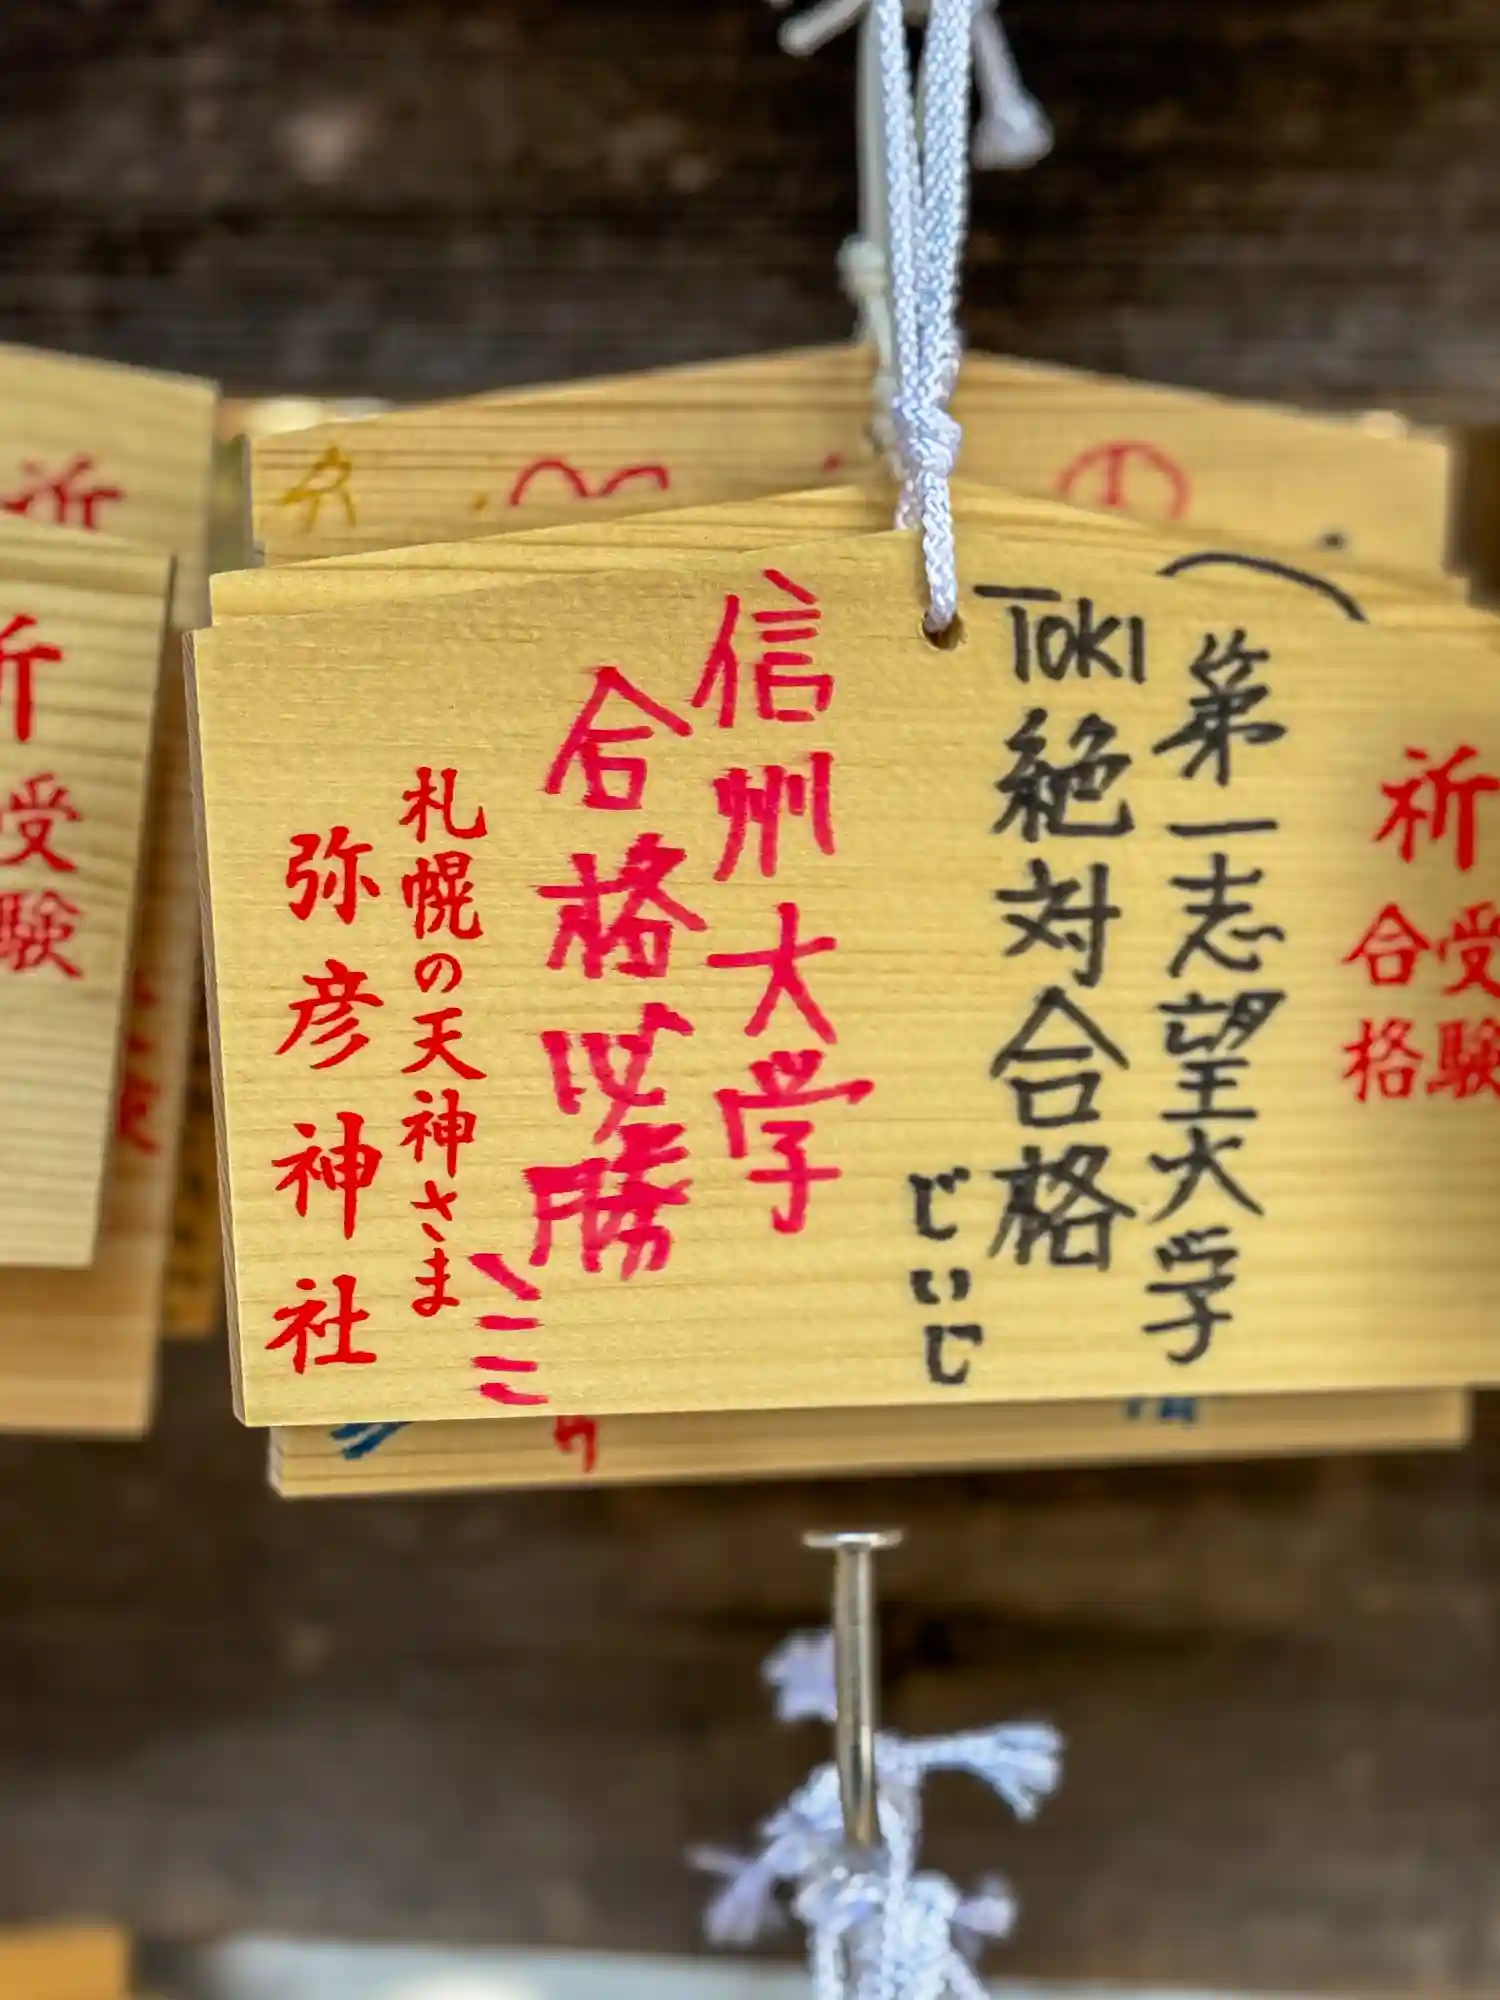 祈
受験
合格
第一志望大学
TOKI
絶対合格
じいじ
信州大学
合格必勝
札幌の天神さま
弥彦神社
祈
祈
受験